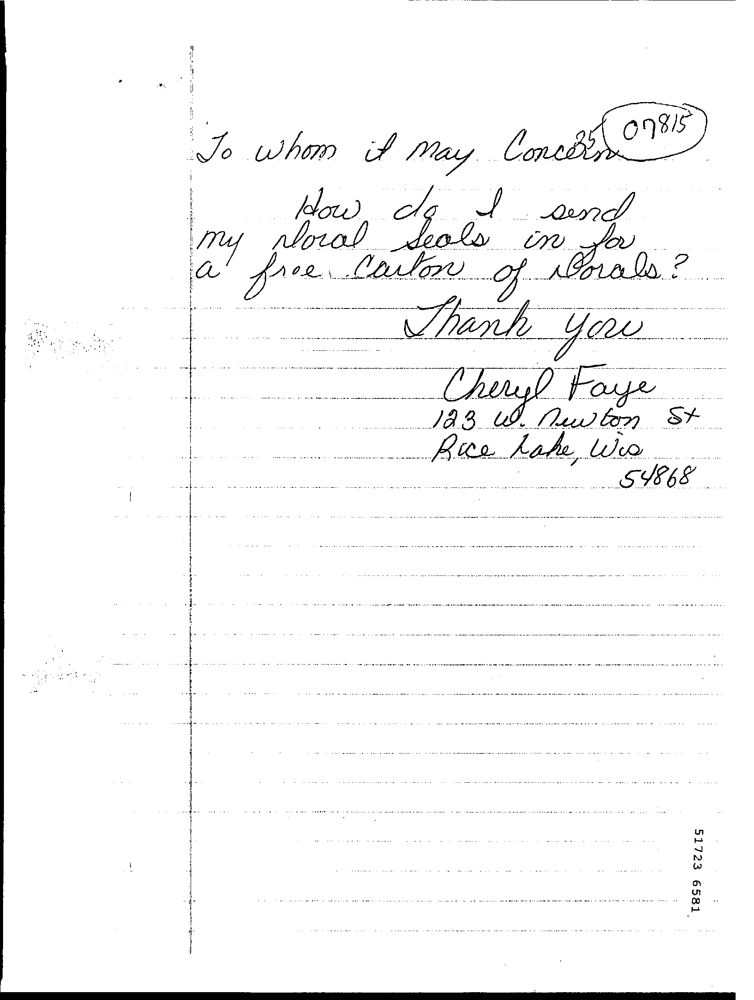 07815
35
To whom it may Concern
How do I send
my Doral Seals in for
a free Carton of Dorals?
Thank you
Cheryl Faye
123 W. Newton St
Rice Lake, Wis
54868
51723 6581